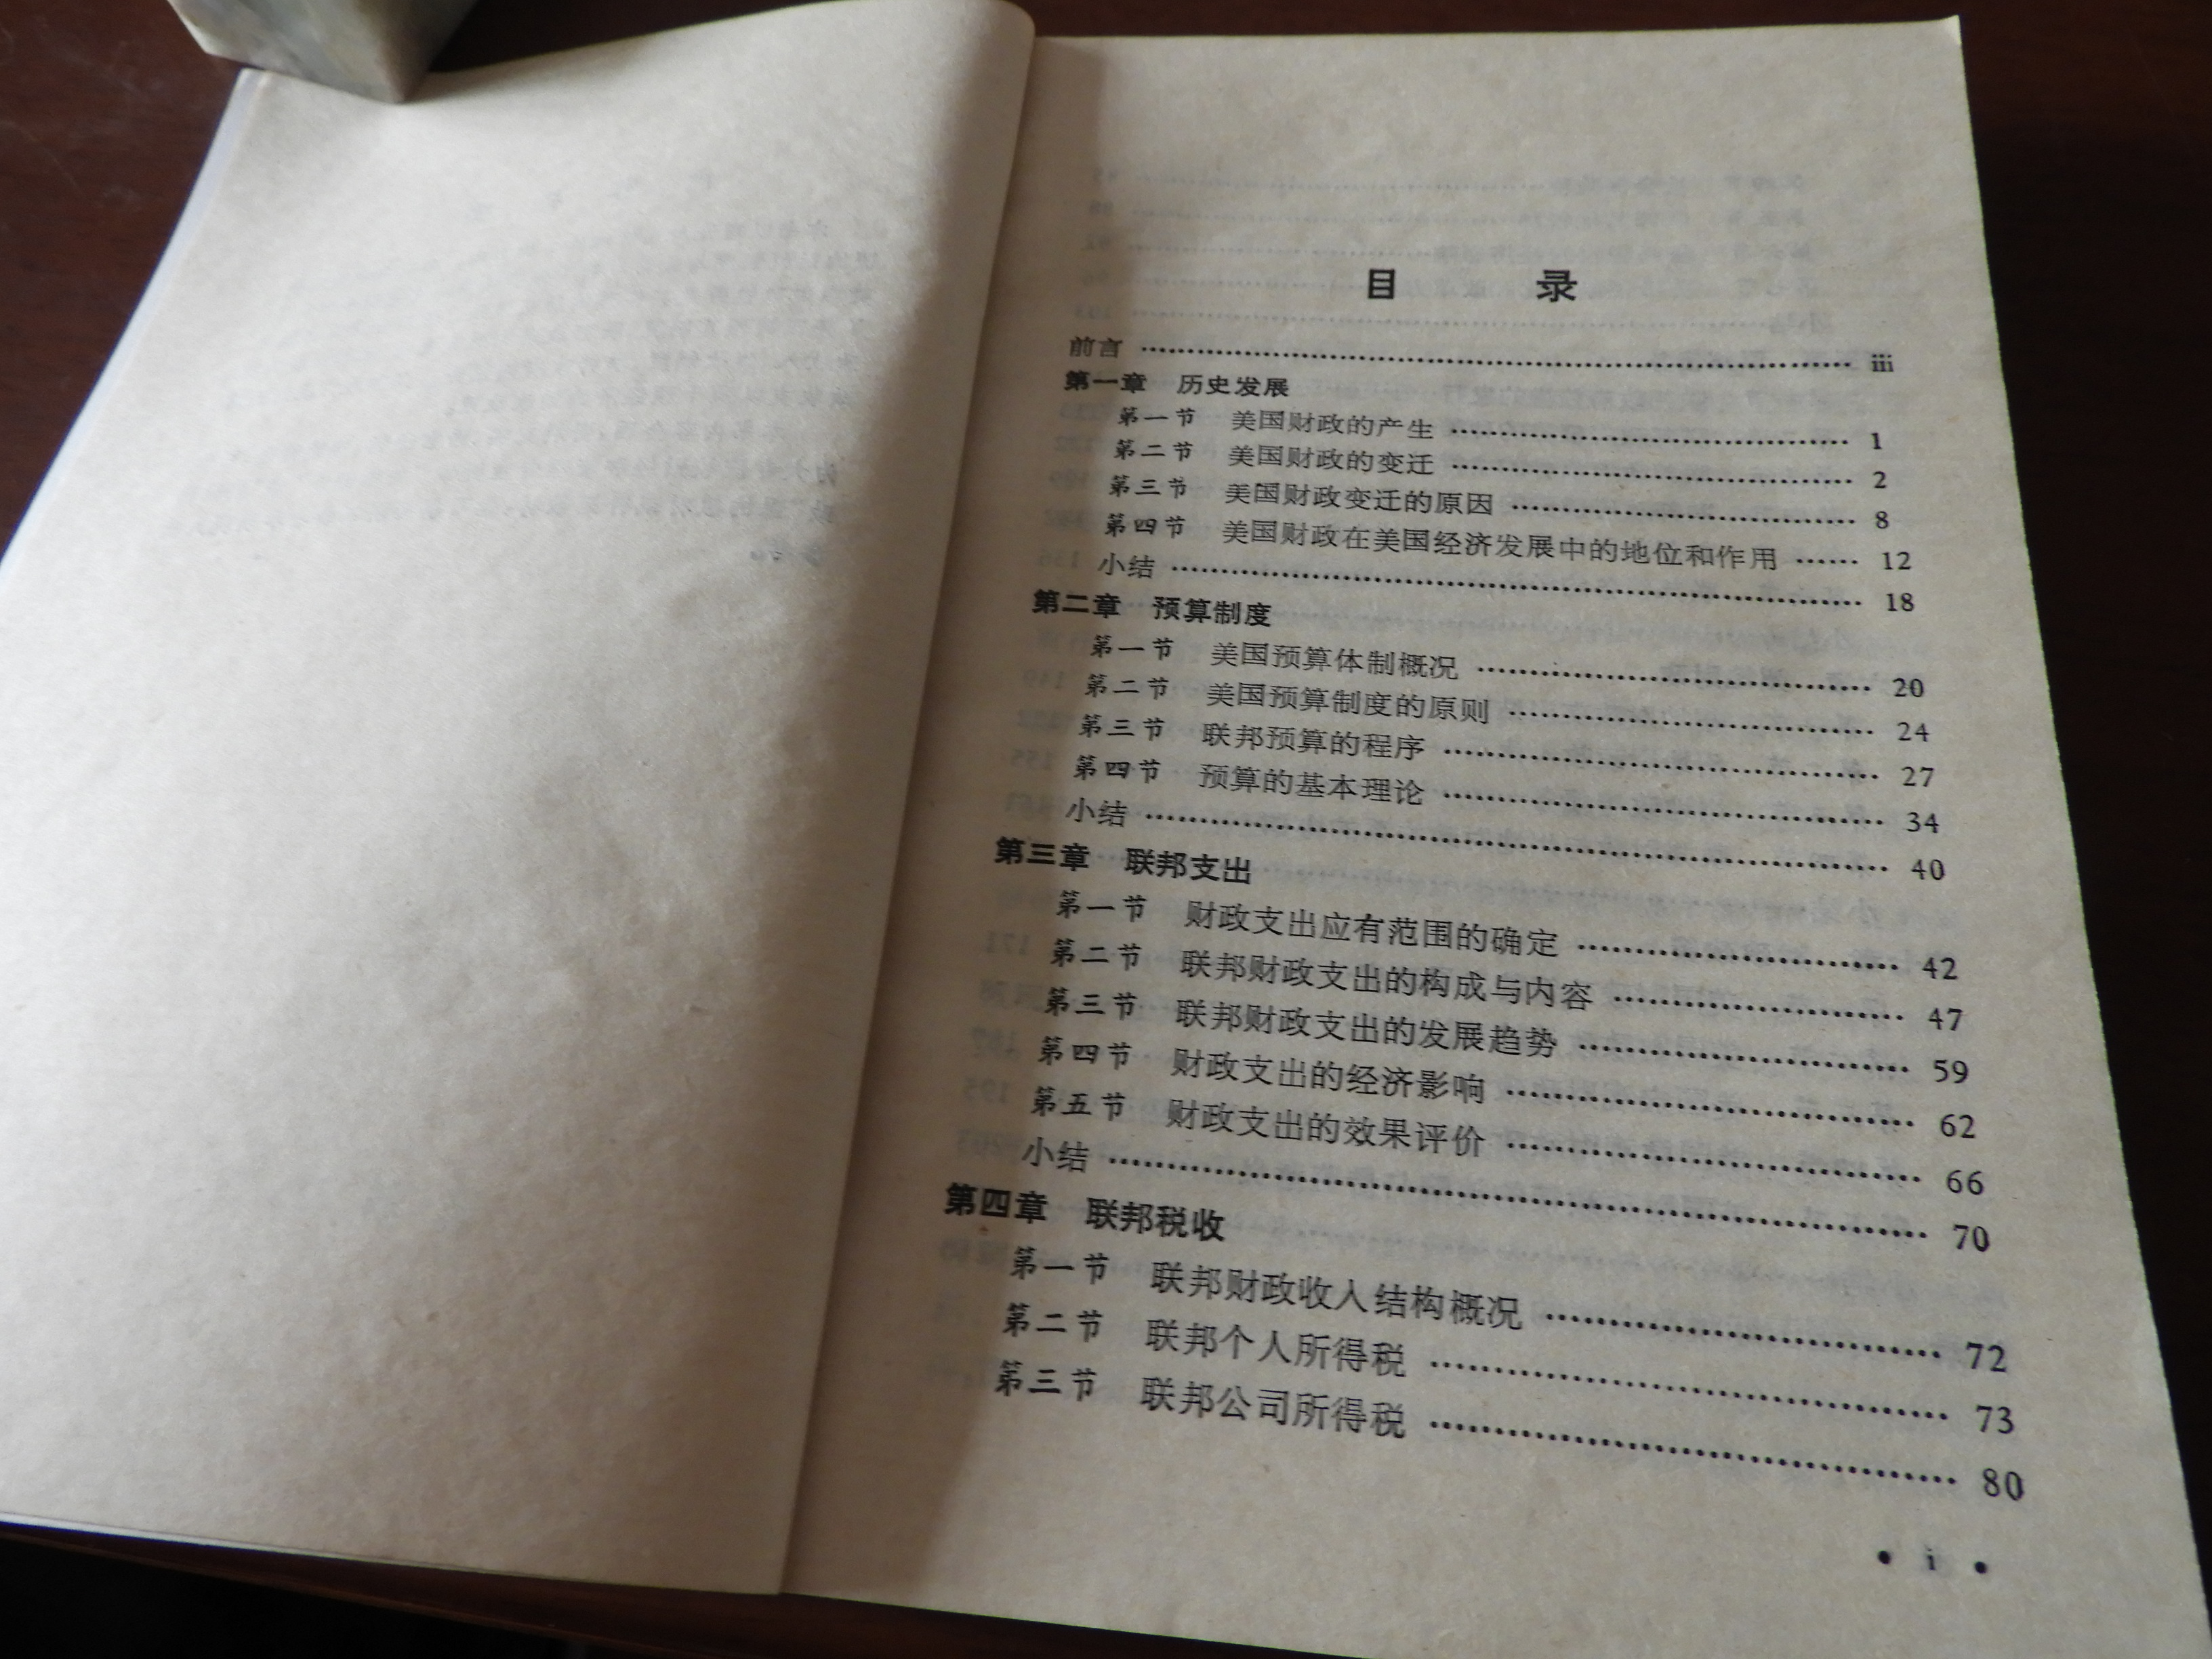 目 录
前言 …… iii
第一章 历史发展
第一节 美国财政的产生 …… 1
第二节 美国财政的变迁 …… 2
第三节 美国财政变迁的原因 …… 8
第四节 美国财政在美国经济发展中的地位和作用 …… 12
小结 …… 18
第二章 预算制度
第一节 美国预算体制概况 …… 20
第二节 美国预算制度的原则 …… 24
第三节 联邦预算的程序 …… 27
第四节 预算的基本理论 …… 34
小结 …… 40
第三章 联邦支出
第一节 财政支出应有范围的确定 …… 42
第二节 联邦财政支出的构成与内容 …… 47
第三节 联邦财政支出的发展趋势 …… 59
第四节 财政支出的经济影响 …… 62
第五节 财政支出的效果评价 …… 66
小结 …… 70
第四章 联邦税收
第一节 联邦财政收入结构概况 …… 72
第二节 联邦个人所得税 …… 73
第三节 联邦公司所得税 …… 80
• i •